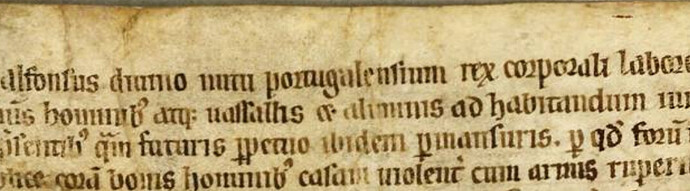 alfonsus diuino nutu portugalensium rex corporali labore
homīnibꝰ atqꝫ uassallis & alumnis ad habitandum
p̄sentibꝰ q̄m futuris ꝑpetuo ibidem ꝑmansuris. ꝑ qđ forū
corā bonis hominibꝰ casam uiolent̄ cum armis ruperi